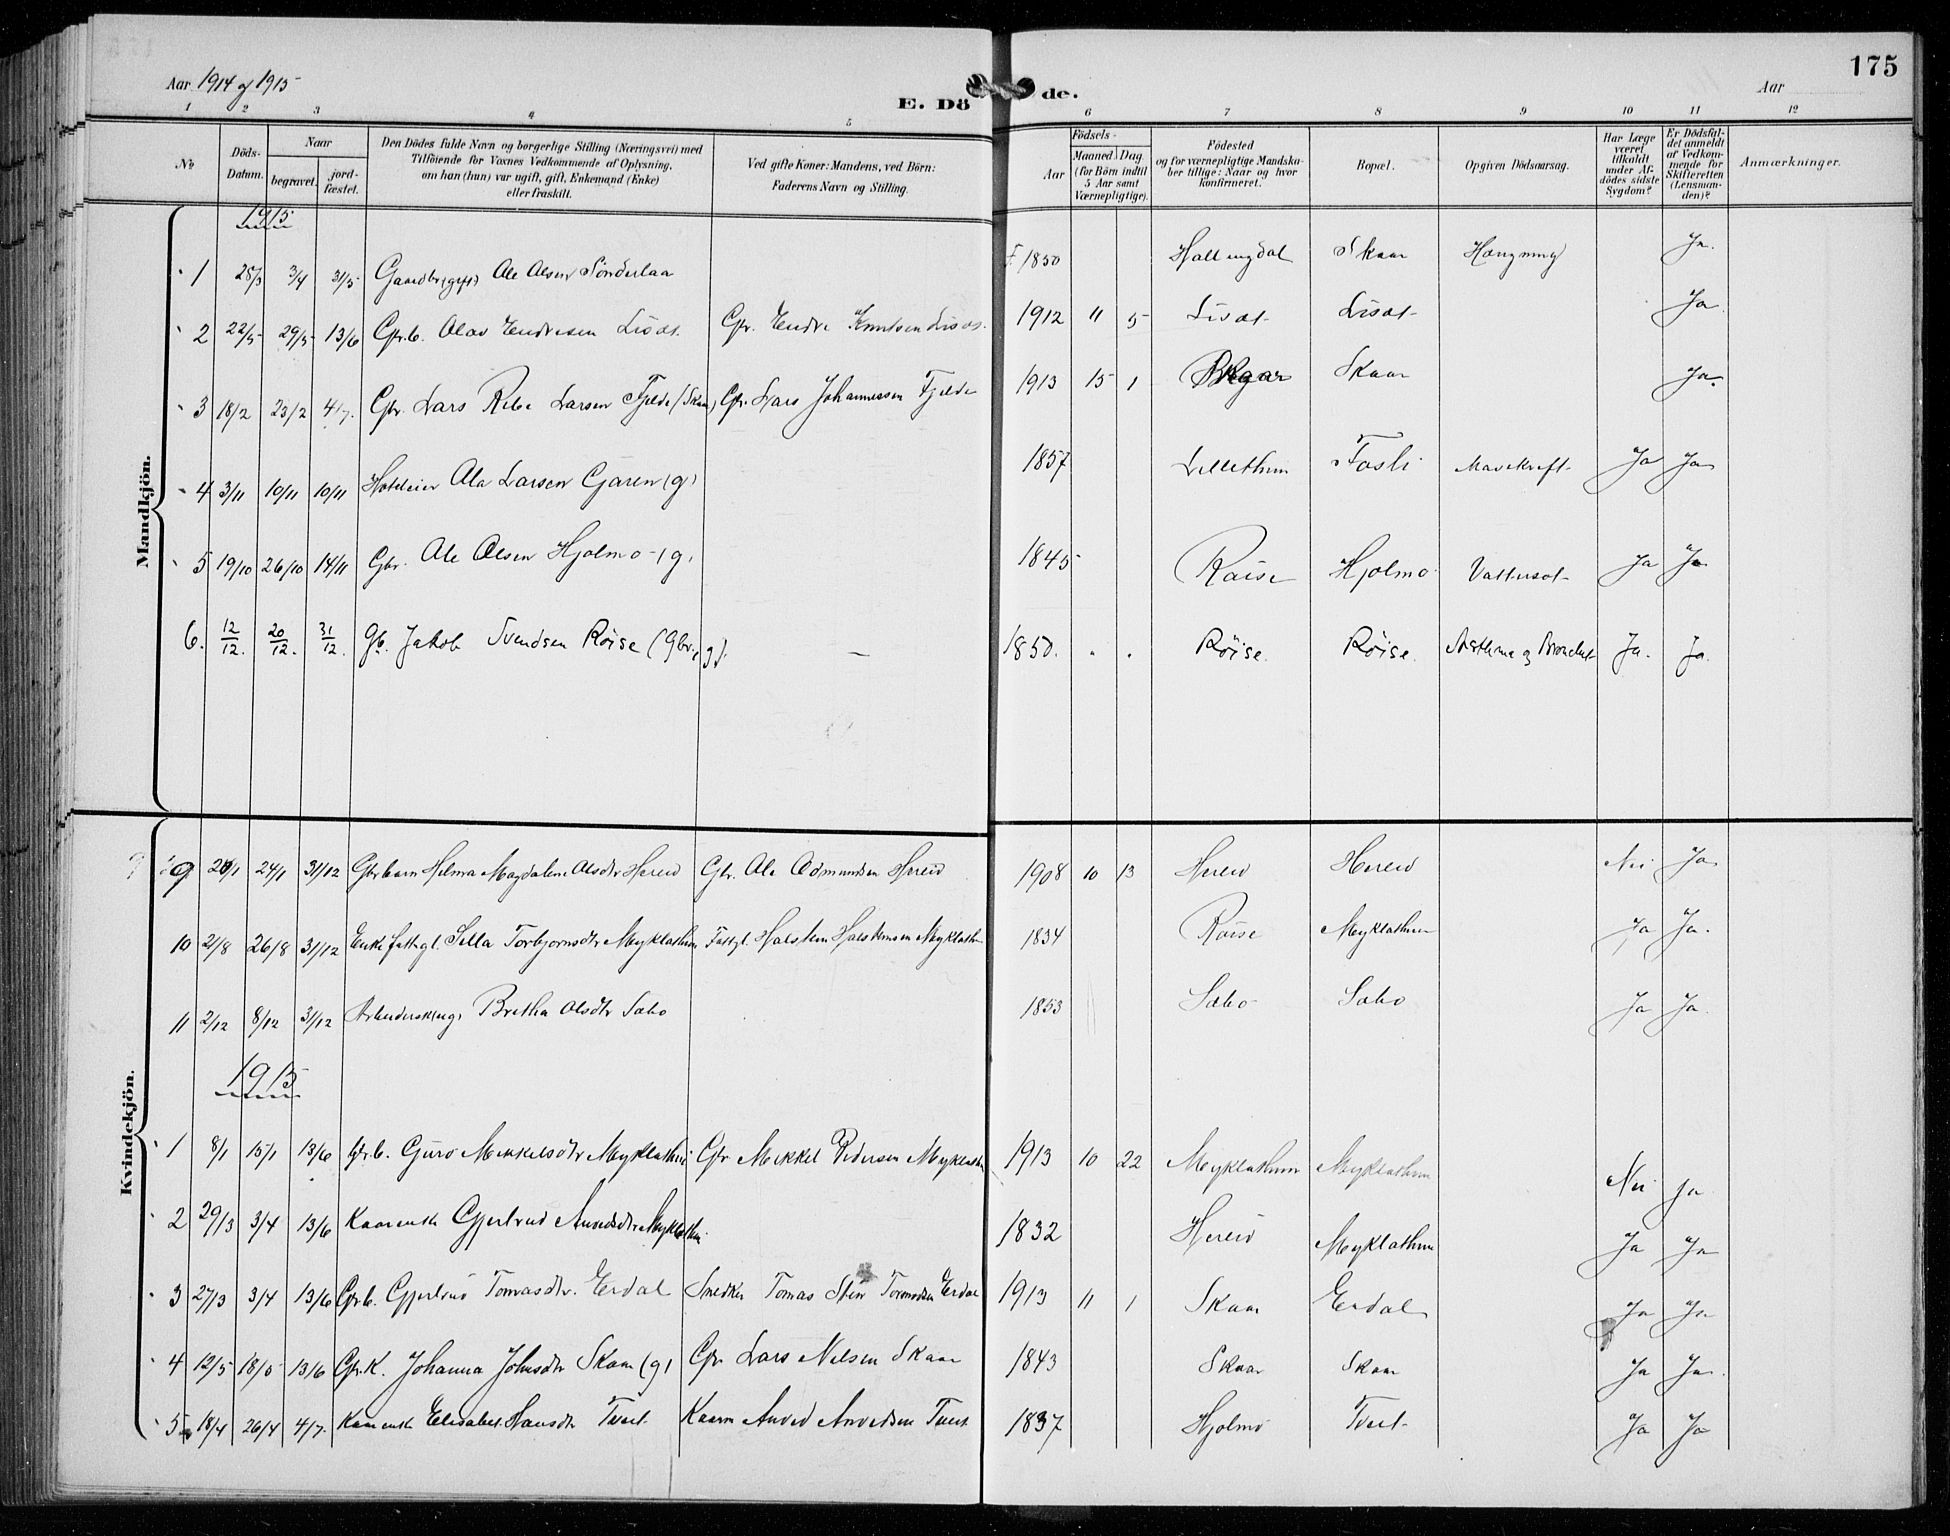 175
Aar 1914 og 1915
E. Dö de.
Aar
1 2 3 4 5 6 7 8 9 10 11 12
No
Döds-Datum.
Naar
begravet.
jord-fæstet.
Den Dödes fulde Navn og borgerlige Stilling (Næringsvei) med
Tilföiende for Voxnes Vedkommende af Oplysning,
om han (hun) var ugift, gift, Enkemand (Enke)
eller fraskilt.
Ved gifte Koner: Mandens, ved Börn:
Faderens Navn og Stilling.
Födsels-
Aar
Maaned
Dag
(for Börn indtil
5 Aar samt
Værnepligtige).
Födested
og for værnepligtige Mandska-
ber tillige: Naar og hvor
konfirmeret.
Bopæl.
Opgiven Dödsaarsag.
Har Læge
været
tilkaldt
under Af-
dödes sidste
Sygdom?
Er Dödsfal-
det anmeldt
af Vedkom-
mende for
Skifteretten
(Lensman-
den)?
Anmærkninger.
Mandkjön.
1915
1 28/3 3/4 31/5 Gaardbr (gift) Ole Olsen Sönderlaa 1850 Hallingdal Skaar Hængning Ja.
2 22/5 29/5 13/6 Gbr.b. Olav Endresen Lisät. Gbr. Endre Knutsen Lisät. 1912 11 5 Lisät Lisät Ja
3 18/2 23/2 4/7. Gbr. Lars Larsen Fjelde (Skaar) Gbr. Lars Johannessen Fjelde 1913 15 1 Skaar Ja.
4 3/11 10/11 10/11 Hoteleier Ola Larsen Garen (g) 1857 Lillethun Fosli Mavekreft Ja Ja
5 19/10 26/10 14/11 Gbr. Ole Olsen Hjolmo (g) 1845 Röise Hjolmo Vattersot Ja Ja
6. 12/12. 20/12. 31/12. Gb. Jakob Svendsen Röise (Gbr., g). — 1850. " " Röise. Röise. Asthma og Bronchit Ja. Ja.
Kvindekjön.
9 20/1 24/1 31/12 Gbrbarn Helma Magdalene Olsdtr Hereid Gbr. Ole Odmundsen Hereid 1908 10 13 Hereid Hereid Nei Ja
10 2/8 26/8 31/12 Enke fattigl. Sella Torbjornsdtr Myklathun Fattgl. Halstein Halsteinsen Myklathun 1834 Röise Myklathun Ja Ja.
11 2/12 8/12 31/12 Britha Olsdtr Sæbo 1853 Sæbo Sæbo Ja Ja.
1915
1 8/1 15/1 13/6 Gbr.b. Guro Mikkelsdtr Myklathun Gbr Mikkel Pedersen Myklathun 1913 10 22 Myklathun Myklathun Nei Ja
2 29/3 3/4 13/6 Kaarenke Gjertrud Anvedsdtr Myklathun. 1832 Hereid Myklathun Ja Ja
3 27/3 3/4 13/6 Gbr.b. Gjertrud Tomasdtr. Erdal Snedker Tomas Erdal 1913 11 1 Skaar Erdal Ja Ja
4 12/5 18/5 13/6 Gbr.K. Johanna Johnsdtr Skaar (g) Gbr Lars Nilsen Skaar 1843 Skaar Skaar Ja Ja.
5 18/4 26/4 4/7. Kaarenke Elisabet Hansdtr Tveit Kaarm Anved Anvedsen Tveit 1837 Hjolmo Tveit Ja Ja